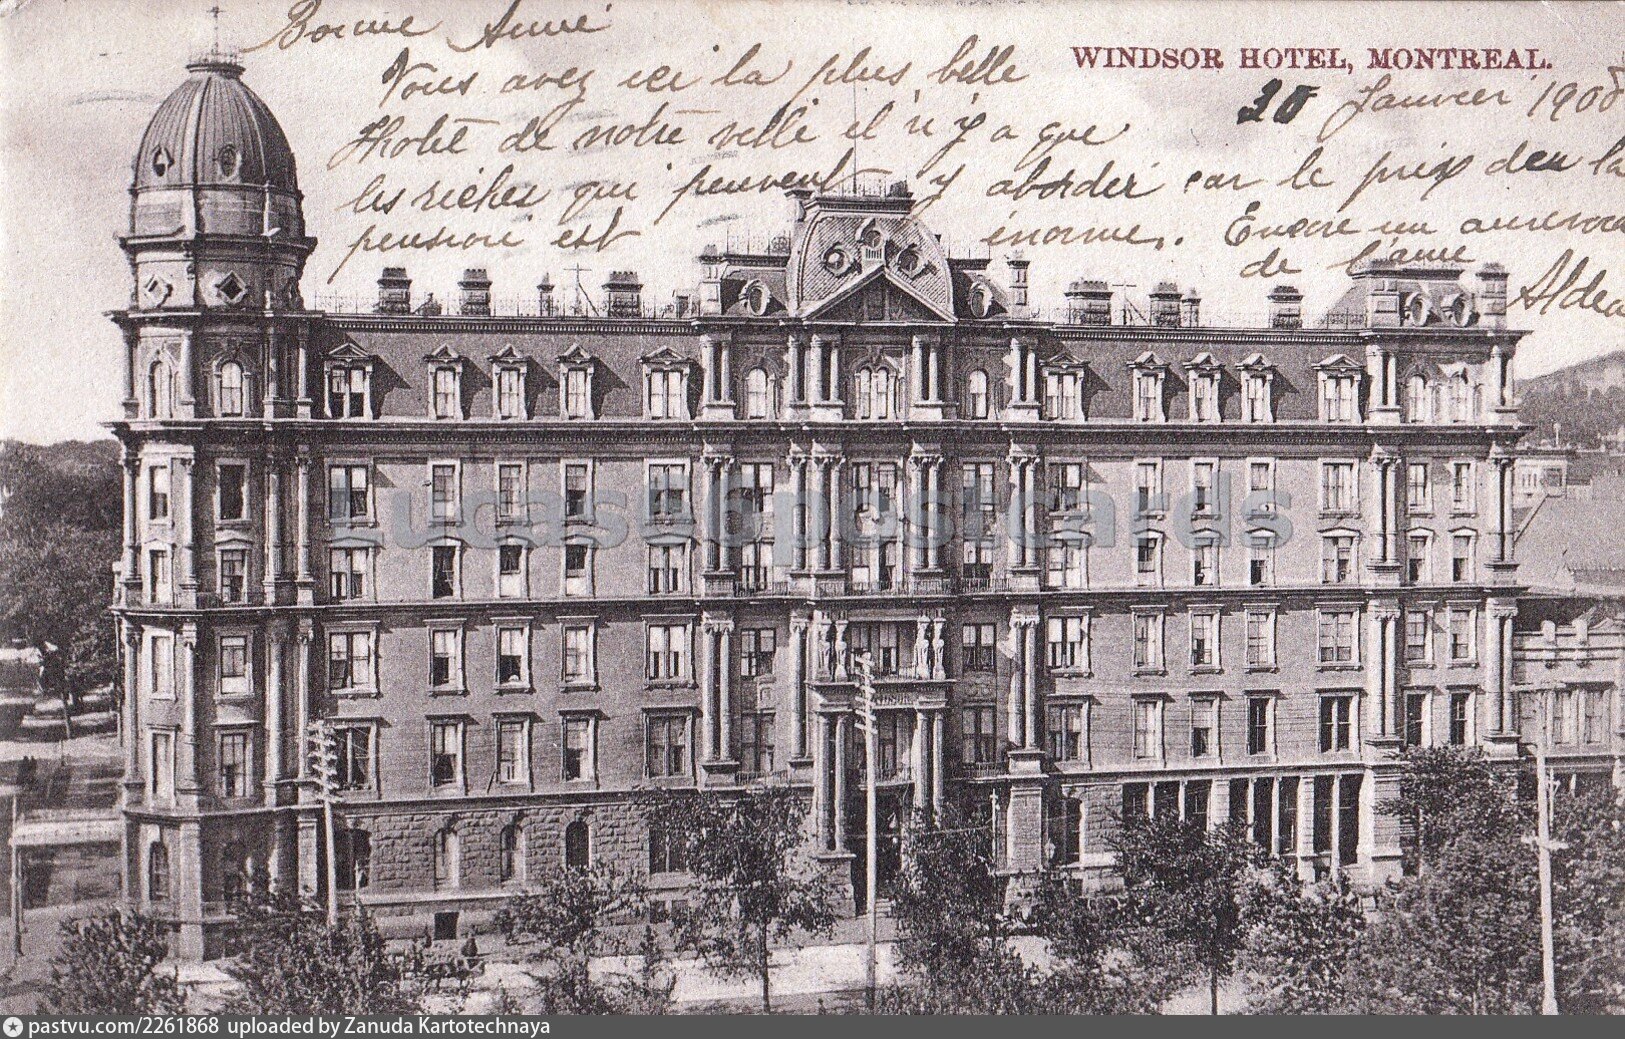 Bonne Anné
WINDSOR HOTEL, MONTREAL.
30 Janvier 1908
Vous avez ici la plus belle
Hhotel de notre ville il n'y a que
les riches qui peuvent y aborder car le prix deu la
pension est énorme. Encore un aurevoir
de l'amie
Alde
Lucas56postcards
pastvu.com/2261868 uploaded by Zanuda Kartotechnaya